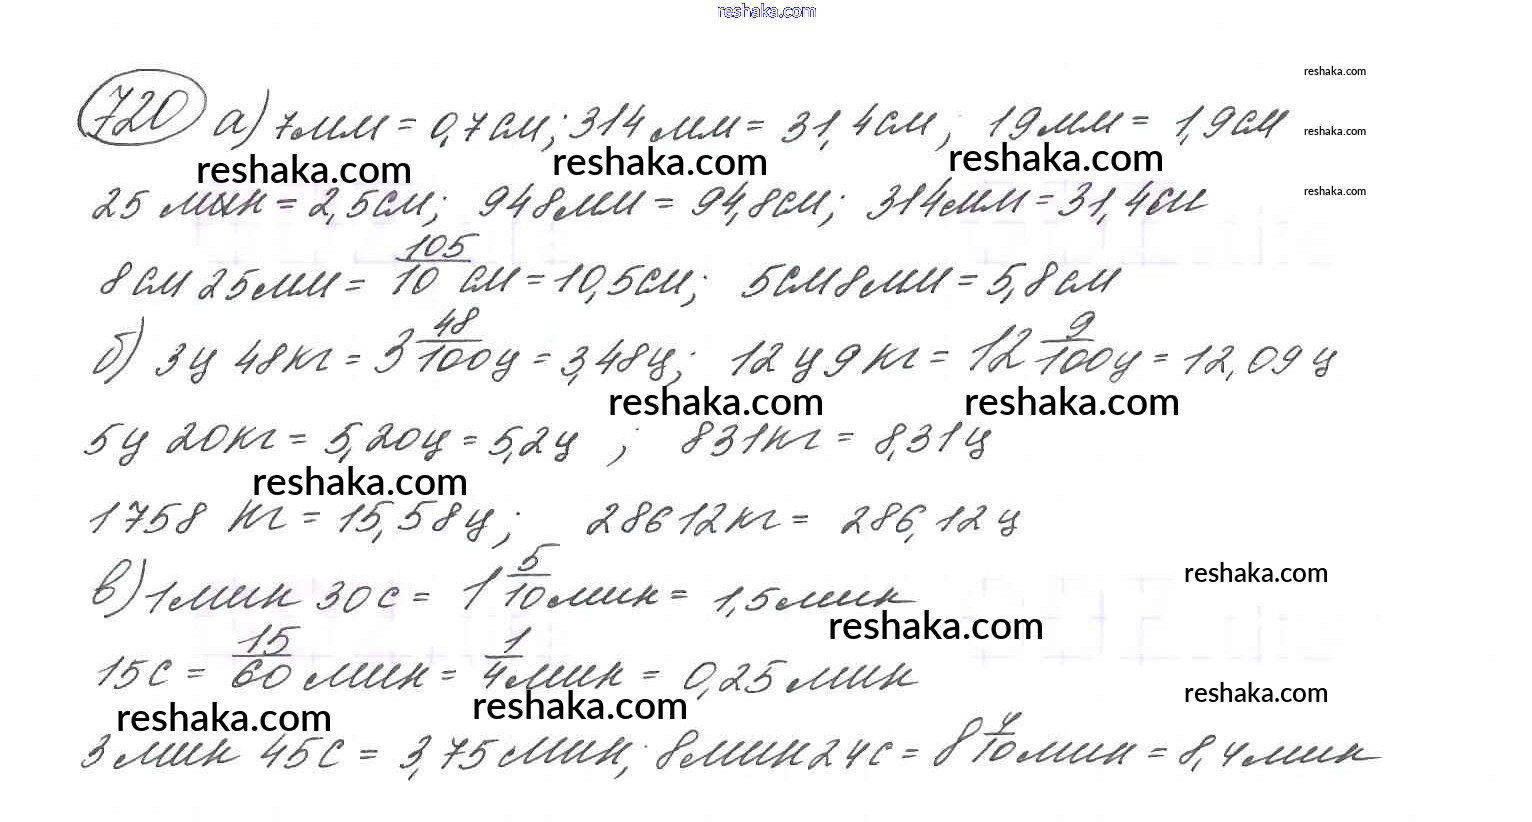 reshaka.com
reshaka.com
720 а) 7мм = 0,7см; 314 мм = 31,4см; 19мм = 1,9см
reshaka.com
reshaka.com reshaka.com reshaka.com
25 мин = 2,5см; 948мм = 94,8см; 314мм = 31,4см
reshaka.com
8см 25мм = 105/10 см = 10,5см; 5см8мм = 5,8см
б) 3ц 48кг = 3 48/100ц = 3,48ц; 12ц9кг = 12 9/100ц = 12,09ц
reshaka.com reshaka.com
5ц 20кг = 5,20ц = 5,2ц ; 831кг = 8,31ц
reshaka.com
1758 кг = 15,58ц; 28612кг = 286,12ц
reshaka.com
в) 1мин 30с = 1 5/10мин = 1,5мин
reshaka.com
15с = 15/60 мин = 1/4мин = 0,25мин
reshaka.com
reshaka.com reshaka.com
3мин 45с = 3,75мин; 8мин24с = 8 4/10мин = 8,4мин